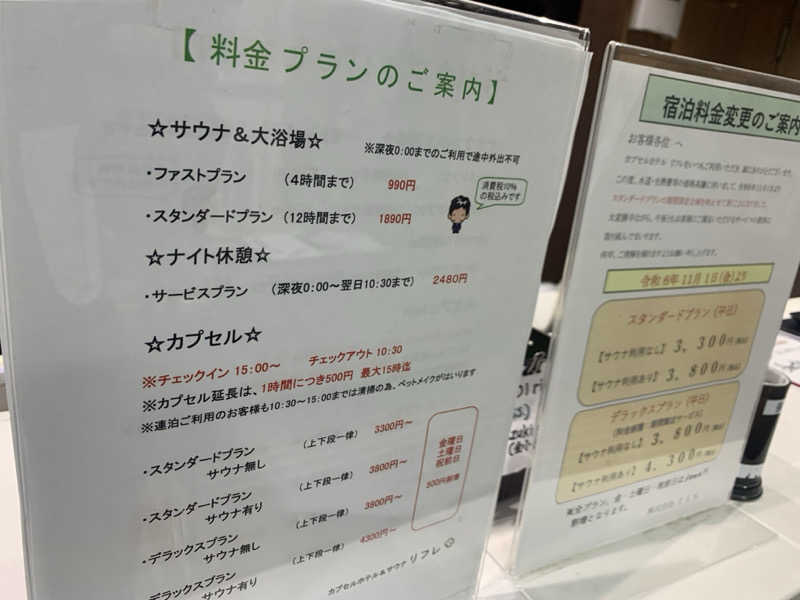 【 料金プランのご案内】
☆サウナ＆大浴場☆
※深夜0:00までのご利用で途中外出不可
・ファストプラン （4時間まで） 990円
・スタンダードプラン （12時間まで） 1890円
消費税10%
の税込みです
☆ナイト休憩☆
・サービスプラン （深夜0:00～翌日10:30まで） 2480円
☆カプセル☆
※チェックイン 15:00～ チェックアウト 10:30
※カプセル延長は、1時間につき500円 最大15時迄
※連泊ご利用のお客様も10:30～15:00までは清掃の為、ベットメイクがはいります
・スタンダードプラン
サウナ無し （上下段一律） 3300円～
・スタンダードプラン
サウナ有り （上下段一律） 3800円～
・デラックスプラン
サウナ無し （上下段一律） 3800円～
・デラックスプラン
サウナ有り （上下段一律） 4300円～
金曜日
土曜日
祝前日
500円割増
カプセルホテル&サウナ リフレ
宿泊料金変更のご案内
お客様各位 へ
令和6年11月1日(金)より
スタンダードプラン（平日）
【サウナ利用なし】3,300円
【サウナ利用あり】3,800円
デラックスプラン（平日）
【サウナ利用なし】3,800円
【サウナ利用あり】4,300円